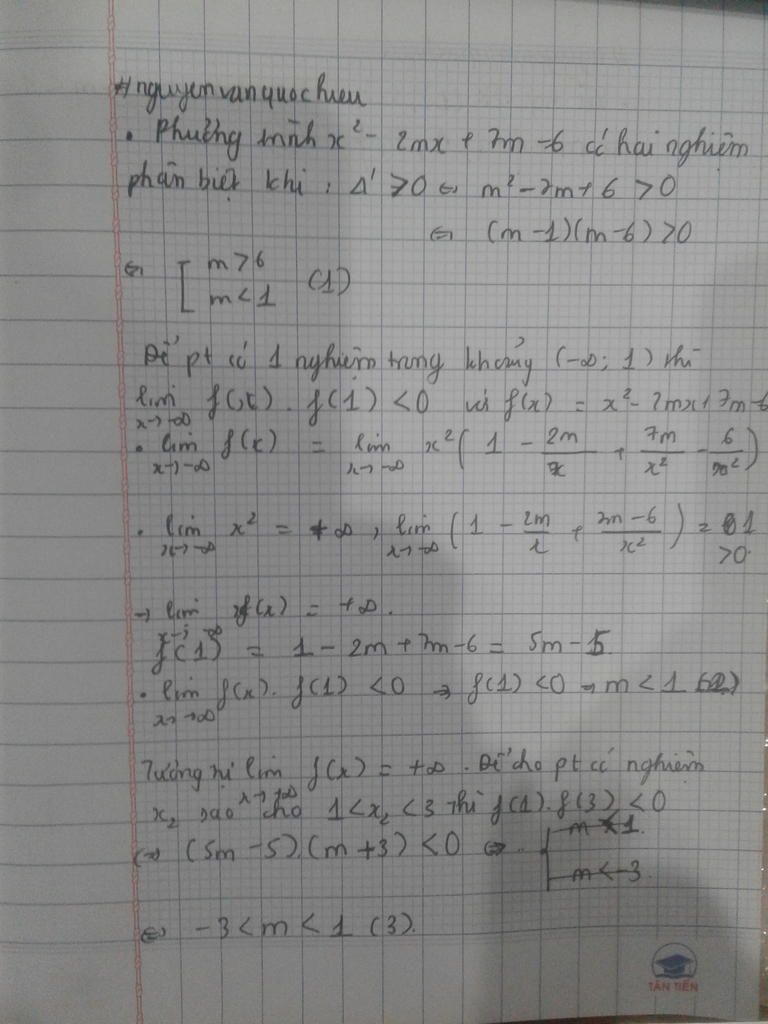 #nguyenvanquochieu
• Phương trình x² - 2mx + 7m - 6 có hai nghiệm
phân biệt khi : Δ' > 0 ⇔ m² - 7m + 6 > 0
⇔ (m - 1)(m - 6) > 0
⇔ [ m > 6
m < 1 (1)
Để pt có 1 nghiệm trong khoảng (-∞; 1) thì
lim x→-∞ f(x) . f(1) < 0 với f(x) = x² - 2mx + 7m - 6
• lim x→-∞ f(x) = lim x→-∞ x² ( 1 - 2m/x + 7m/x² - 6/x² )
• lim x→-∞ x² = +∞ , lim x→-∞ ( 1 - 2m/x + 7m - 6/x² ) = 1
> 0.
→ lim x→-∞ f(x) = +∞.
f(1) = 1 - 2m + 7m - 6 = 5m - 5
• lim x→-∞ f(x) . f(1) < 0 → f(1) < 0 → m < 1 (2)
Tương tự lim x→+∞ f(x) = +∞ . Để cho pt có nghiệm
x₂ sao cho 1 < x₂ < 3 thì f(1) . f(3) < 0
⇔ (5m - 5).(m + 3) < 0 ⇔
⇔ -3 < m < 1 (3).
TÂN TIẾN